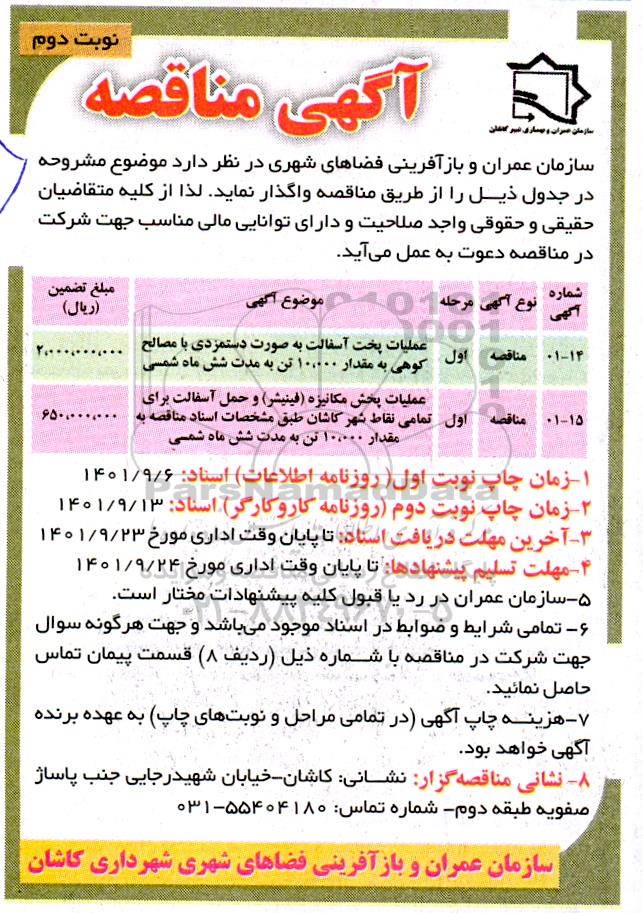 نوبت دوم
آگهی مناقصه
سازمان عمران و بهسازی شهر کاشان
سازمان عمران و بازآفرینی فضاهای شهری در نظر دارد موضوع مشروحه
در جدول ذیـــل را از طریق مناقصه واگذار نماید. لذا از کلیه متقاضیان
حقیقی و حقوقی واجد صلاحیت و دارای توانایی مالی مناسب جهت شرکت
در مناقصه دعوت به عمل می‌آید.
شماره آگهی نوع آگهی مرحله موضوع آگهی مبلغ تضمین (ریال)
۰۱-۱۴ مناقصه اول عملیات پخت آسفالت به صورت دستمزدی با مصالح ۲,۰۰۰,۰۰۰,۰۰۰
کوهی به مقدار ۱۰,۰۰۰ تن به مدت شش ماه شمسی
۰۱-۱۵ مناقصه اول عملیات پخش مکانیزه (فینیشر) و حمل آسفالت برای ۶۵۰,۰۰۰,۰۰۰
تمامی نقاط شهر کاشان طبق مشخصات اسناد مناقصه به
مقدار ۱۰,۰۰۰ تن به مدت شش ماه شمسی
۱-زمان چاپ نوبت اول( روزنامه اطلاعات) اسناد: ۱۴۰۱/۹/۶
۲-زمان چاپ نوبت دوم (روزنامه کاروکارگر) اسناد: ۱۴۰۱/۹/۱۳
۳-آخرین مهلت دریافت اسناد: تا پایان وقت اداری مورخ ۱۴۰۱/۹/۲۳
۴-مهلت تسلیم پیشنهادها: تا پایان وقت اداری مورخ ۱۴۰۱/۹/۲۴
۵-سازمان عمران در رد یا قبول کلیه پیشنهادات مختار است.
۶- تمامی شرایط و ضوابط در اسناد موجود می‌باشد و جهت هرگونه سوال
جهت شرکت در مناقصه با شـــماره ذیل (ردیف ۸) قسمت پیمان تماس
حاصل نمائید.
۷-هزینـــه چاپ آگهی (در تمامی مراحل و نوبت‌های چاپ) به عهده برنده
آگهی خواهد بود.
۸- نشانی مناقصه‌گزار: نشـــانی: کاشان-خیابان شهیدرجایی جنب پاساژ
صفویه طبقه دوم- شماره تماس: ۵۵۴۰۴۱۸۰-۰۳۱
سازمان عمران و بازآفرینی فضاهای شهری شهرداری کاشان
ParsNamadData
۰۲۱-۸۸۳۴۹۶۷۰-۵